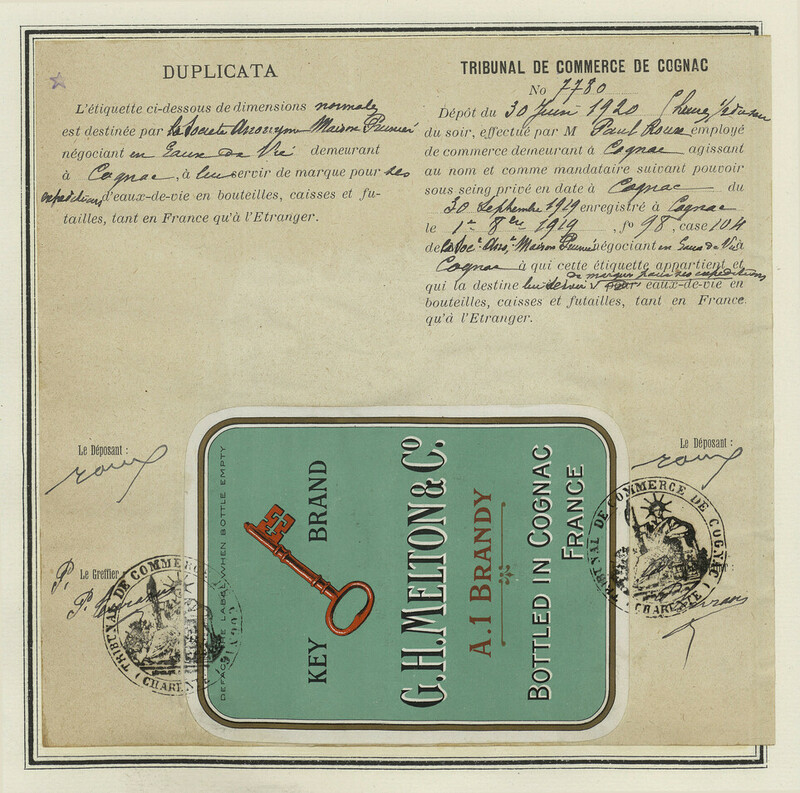 DUPLICATA
L'étiquette ci-dessous de dimensions normales
est destinée par la Societe Anonyme Maison Prunier
négociant en Eaux de Vie demeurant
à Cognac, à leur servir de marque pour ses
expéditions d'eaux-de-vie en bouteilles, caisses et fu-
tailles, tant en France qu'à l'Etranger.
TRIBUNAL DE COMMERCE DE COGNAC
No 7780
Dépôt du 30 Juin 1920
du soir, effectué par M Paul Roux employé
de commerce demeurant à Cognac agissant
au nom et comme mandataire suivant pouvoir
sous seing privé en date à Cognac du
30 Septembre 1919 enregistré à Cognac
le 1er 8bre 1919, fo 98, case 104
de la Soc. Ano. Maison Prunier négociant en Eaux de Vie à
Cognac à qui cette étiquette appartient et
de marque pour ses expéditions
qui la destine leur servir eaux-de-vie en
bouteilles, caisses et futailles, tant en France
qu'à l'Etranger.
Le Déposant :
Roux
Le Déposant :
Roux
Le Greffier
P.
TRIBUNAL DE COMMERCE DE COGNAC
(CHARENTE)
TRIBUNAL DE COMMERCE DE COGNAC
(CHARENTE)
DEFACE THE LABEL WHEN BOTTLE EMPTY
KEY BRAND
G.H.MELTON & Co.
A.1 BRANDY
BOTTLED IN COGNAC
FRANCE